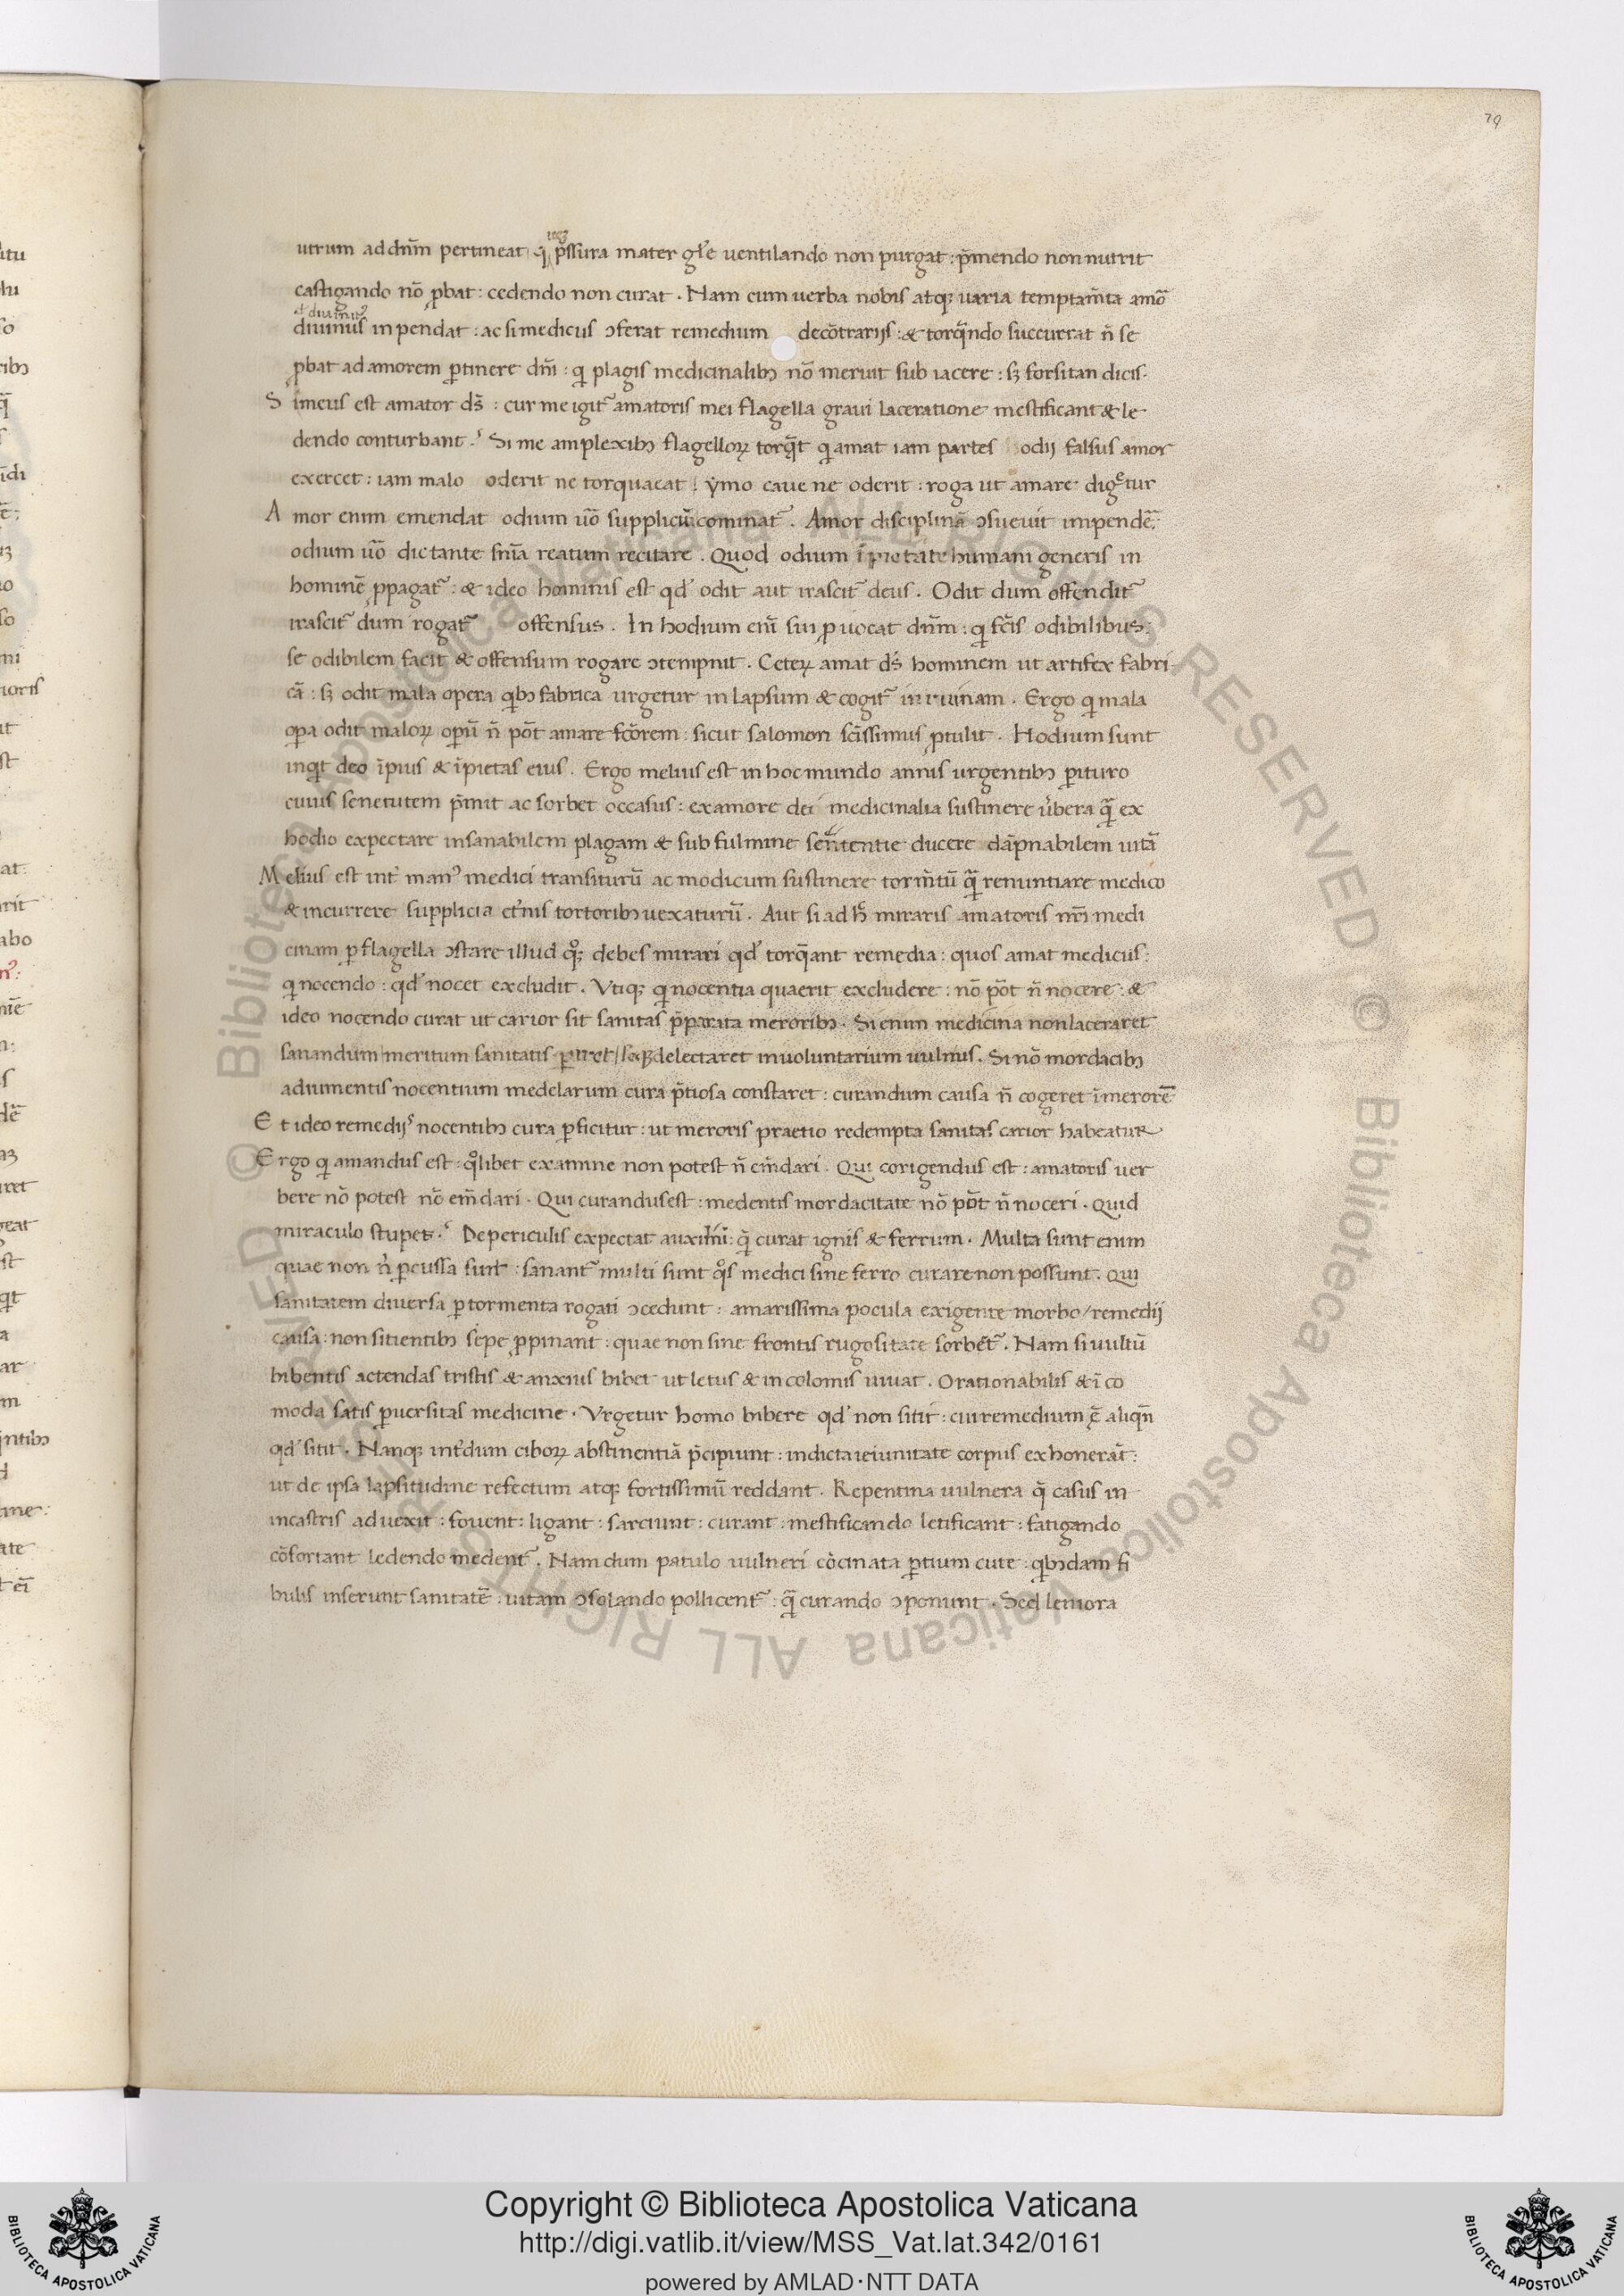 79
utrum ad dnm̄ pertineat q̣ p̄ssura mater gl̄e ventilando non purgat : p̄mendo non nutrit
castigando nō ꝓbat : cedendo non curat . Nam cum verba nobis atqꝫ varia temptam̄ta amō
divinus inpendat : ac si medicus ↄferat remedium decōtrarijs : & torq̄ndo succurrat n̄ se
ꝓbat ad amorem ꝑtinere dn̄i : qͥ plagis medicinalibꝫ nō meruit sub iacere : sꝫ forsitan dicis .
S i meus est amator ds̄ : cur me igit᷑ amatoris mei flagella gravi laceratione mestificant & le
dendo conturbant . Si me amplexibꝫ flagelloꝝ torq̄t qͥ amat iam partes odij falsus amor
exercet : iam malo oderit ne torqueat ! ẏmo cave ne oderit : roga ut amare digetur
A mor enim emendat odium uō suppliciū cominat᷑ . Amor disciplinā ↄsuevit impendē
odium uō dictante sn̄ia reatum recitare . Quod odium īpietate humani generis in
hominē ꝓpagat᷑ : & ideo hominis est qd̕ odit aut irascit᷑ deus . Odit dum offendit᷑
irascit᷑ dum rogat᷑ offensus . In hodium eni̅ sui ꝓvocat dn̄m : qͥ fc̄is odibilibus
se odibilem facit & offensum rogare ↄtempnit . Ceteꝝ amat ds̄ hominem ut artifex fabri
cā : sꝫ odit mala opera qͥbꝫ fabrica urgetur in lapsum & cogit᷑ in ruinam . Ergo qͥ mala
oꝑa odit maloꝝ oꝑū n̄ pōt amare fc̄orem : sicut salomon sc̄issimus ꝓtulit . Hodium sunt
inqͥt deo īpius & īpietas eius . Ergo melius est in hoc mundo annis urgentibꝫ ꝑituro
cuius senetutem p̄mit ac sorbet occasus : ex amore dei medicinalia sustinere ṽbera qͣ̄ ex
hodio expectare insanabilem plagam & sub fulmine sententie ducere dāpnabilem vitā
M elius est int̕ manꝰ medici transiturū ac modicum sustinere torm̄tū qͣ̄ renuntiare medico
& incurrere supplicia et̕nis tortoribꝫ vexaturū . Aut si ad h̄ miraris amatoris nr̄i medi
cinam ꝑ flagella ↄstare illud qͦqꝫ debes mirari qd̕ torq̄ant remedia : quos amat medicus :
qͥ nocendo : qd̕ nocet excludit . Utiqꝫ qͥ nocentia quaerit excludere : nō pōt n̄ nocere : &
ideo nocendo curat ut carior sit sanitas p̄parata meroribꝫ . Si enim medicina non laceraret
sanandum meritum sanitatis ꝑiret / seqꝫ delectaret involuntarium vulnus . Si nō mordacibꝫ
adiumentis nocentium medelarum cura p̄tiosa constaret : curandum causa n̄ cogeret ī merorē
E t ideo remedijs nocentibꝫ cura ꝑficitur : ut meroris praetio redempta sanitas carior habeatur
E rgo qͥ amandus est : qͦlibet examine non potest n̄ em̄dari . Qui corigendus est : amatoris ver
bere nō potest nō em̄dari . Qui curandus est : medentis mordacitate nō pōt n̄ noceri . Quid
miraculo stupes . De periculis expectat auxilm̄ : q̄ curat ignis & ferrum . Multa sunt enim
quae non n̄ ꝑcussa sunt : sanant᷑ multi sunt qͦs medici sine ferro curare non possunt . Qui
sanitatem diversa ꝑ tormenta rogati ↄcedunt : amarissima pocula exigente morbo / remedij
causa : non sitientibꝫ sepe ꝓpinant : quae non sine frontis rugositate sorbet᷑ . Nam si vultū
bibentis actendas tristis & anxius bibet ut letus & incolomis vivat . O rationabilis & ī co
moda satis ꝑversitas medicine . Urgetur homo bibere qd̕ non sitit : cui remedium ē aliqn̄
qd̕ sitit . Nanqꝫ int̕dum ciboꝝ abstinentiā p̄cipiunt : indicta ieiunitate corpus exhonerāt :
ut de ipsa lapsitudine refectum atqꝫ fortissimū reddant . Repentina vulnera q̄ casus in
incastris advexit : fovent : ligant : sarciunt : curant : mestificando letificant : fatigando
cōfortant ledendo medent᷑ . Nam dum patulo vulneri cōcinata ꝑtium cute : qͥbꝫdam fi
bulis inserunt sanitatē : vitam ↄsolando pollicent᷑ : qͣ̄ curando ↄponunt . Sed leviora
Copyright © Biblioteca Apostolica Vaticana
http://digi.vatlib.it/view/MSS_Vat.lat.342/0161
powered by AMLAD·NTT DATA
BIBLIOTECA APOSTOLICA VATICANA
BIBLIOTECA APOSTOLICA VATICANA